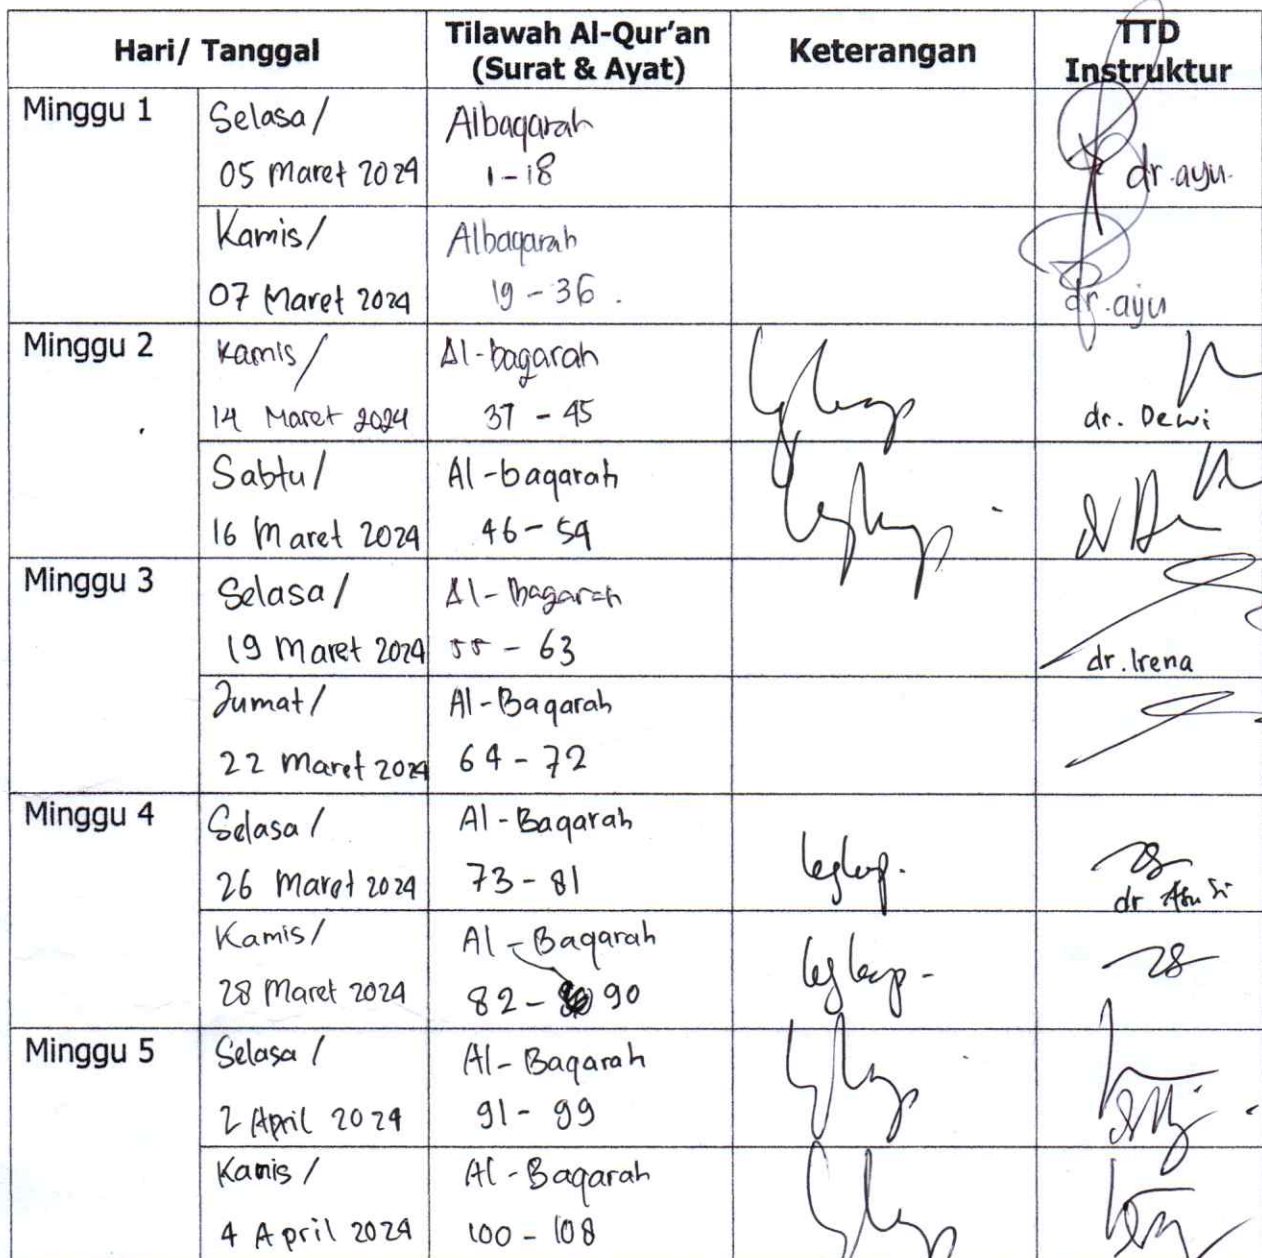 Hari/ Tanggal
Tilawah Al-Qur'an
(Surat & Ayat)
Keterangan
TTD
Instruktur
Minggu 1
Selasa /
05 Maret 2024
Albaqarah
1-18
dr.ayu
Kamis/
07 Maret 2024
Albaqarah
19 - 36 .
dr.ayu
Minggu 2
Kamis /
14 Maret 2024
Al-baqarah
37 - 45
dr. Dewi
Sabtu/
16 Maret 2024
Al-baqarah
46 - 54
Minggu 3
Selasa /
19 Maret 2024
Al-Baqarah
55 - 63
dr. Irena
Jumat/
22 Maret 2024
Al-Baqarah
64 - 72
Minggu 4
Selasa /
26 Maret 2024
Al-Baqarah
73 - 81
lengkap.
dr
Kamis/
28 Maret 2024
Al-Baqarah
82 - 90
lengkap -
Minggu 5
Selasa /
2 April 2024
Al-Baqarah
91 - 99
Kamis /
4 April 2024
Al-Baqarah
100 - 108